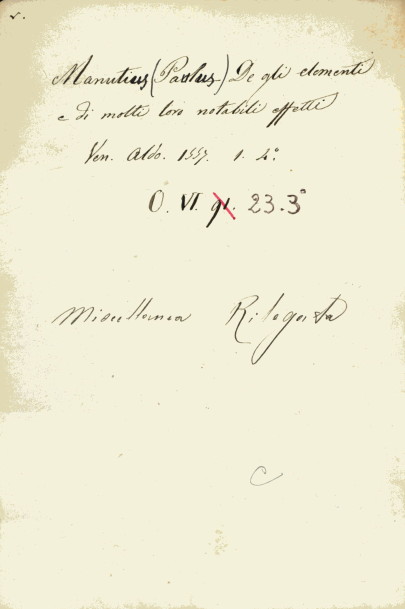 v.
Manutius (Paulus.) De gli elementi
e di molti loro notabili effetti
Ven. Aldo. 1557. 1. 4.º
O. VI. 91. 23.3º
Miscellanea Rilegata
C